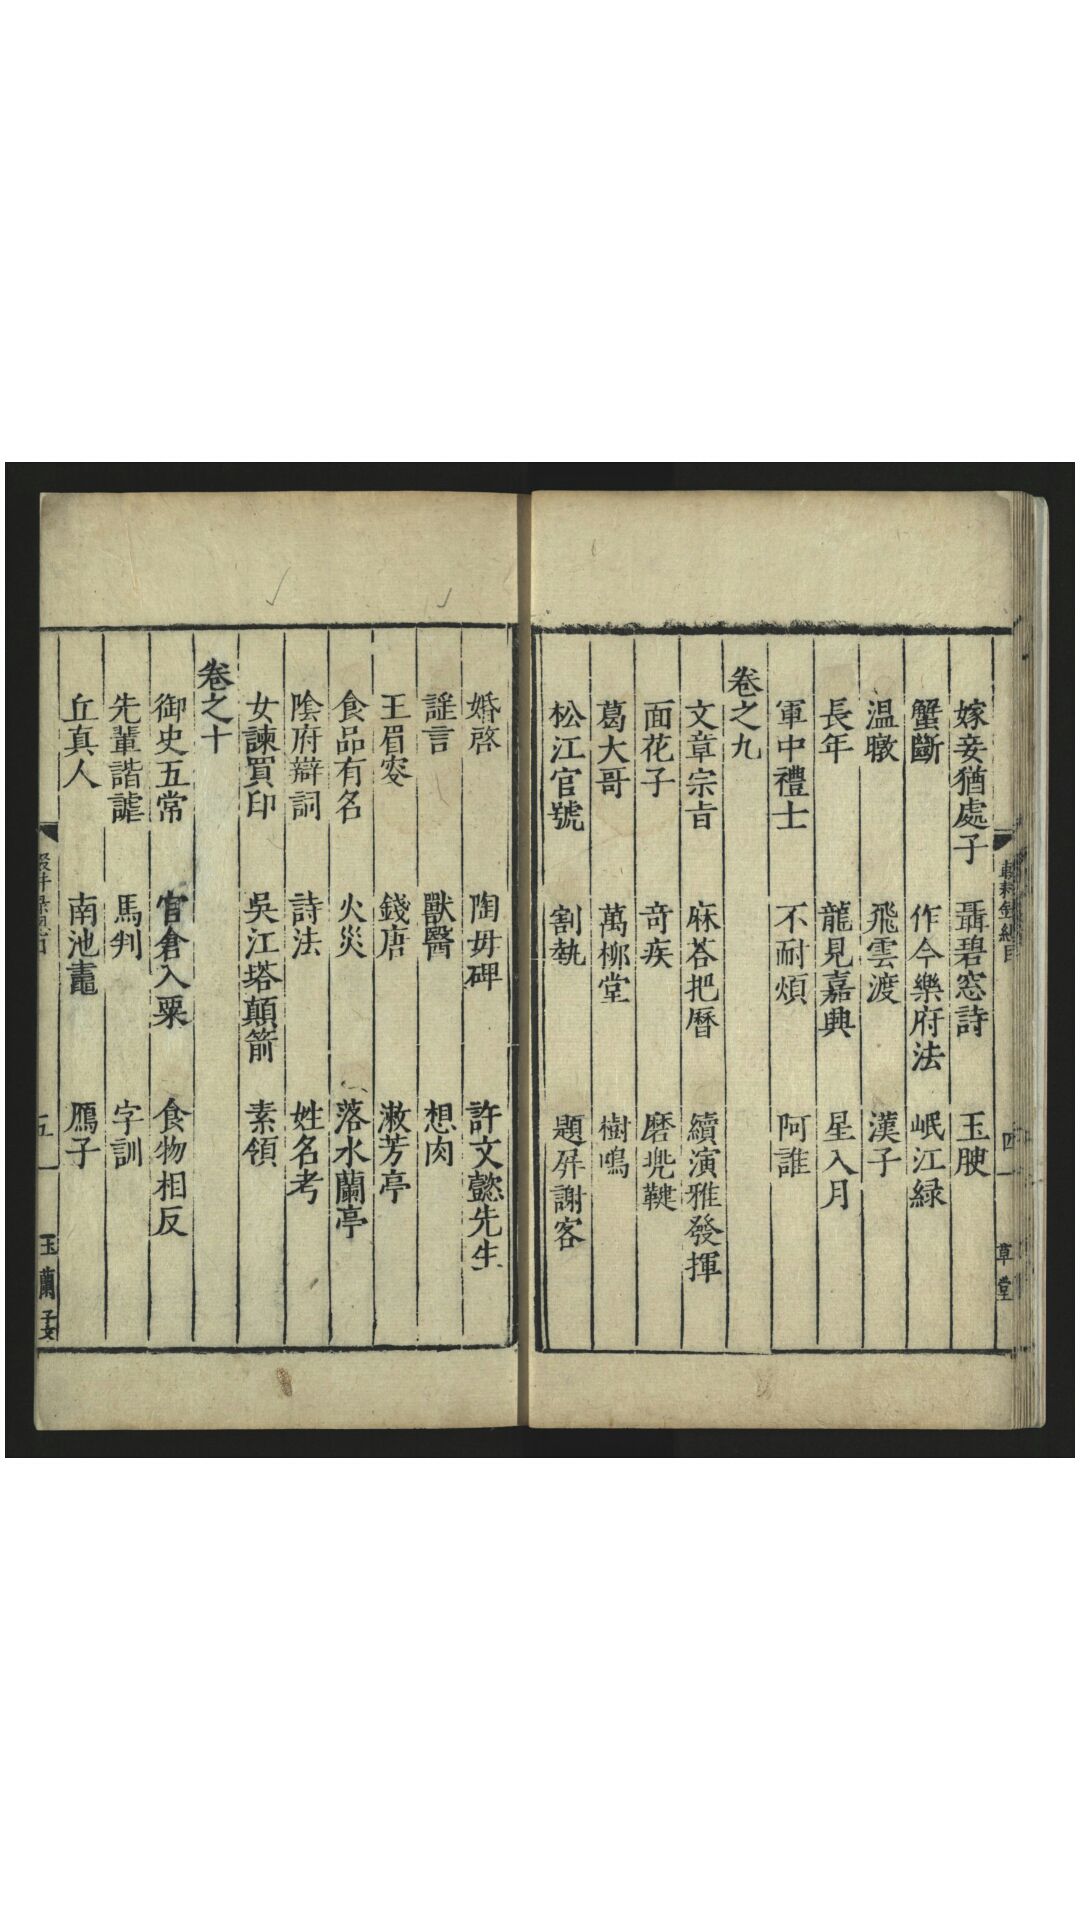 嫁妾猶處子　聶碧窓詩　玉腴
蟹斷　作今樂府法　岷江緑
温暾　飛雲渡　漢子
長年　龍見嘉興　星入月
軍中禮士　不耐煩　阿誰
卷之九
文章宗旨　麻荅把曆　續演雅發揮
面花子　竒疾　磨兠鞬
葛大哥　萬栁堂　樹鳴
松江官號　割執　題屏謝客
婚啓　陶母碑　許文懿先生
謡言　獸醫　想肉
王眉叟　錢唐　漱芳亭
食品有名　火災　落水蘭亭
陰府辯詞　詩法　姓名考
女諫買印　吳江塔顛箭　素領
卷之十
御史五常　官倉入粟　食物相反
先輩諧謔　馬判　字訓
丘真人　南池鼃　鴈子
四
草堂
五
玉蘭